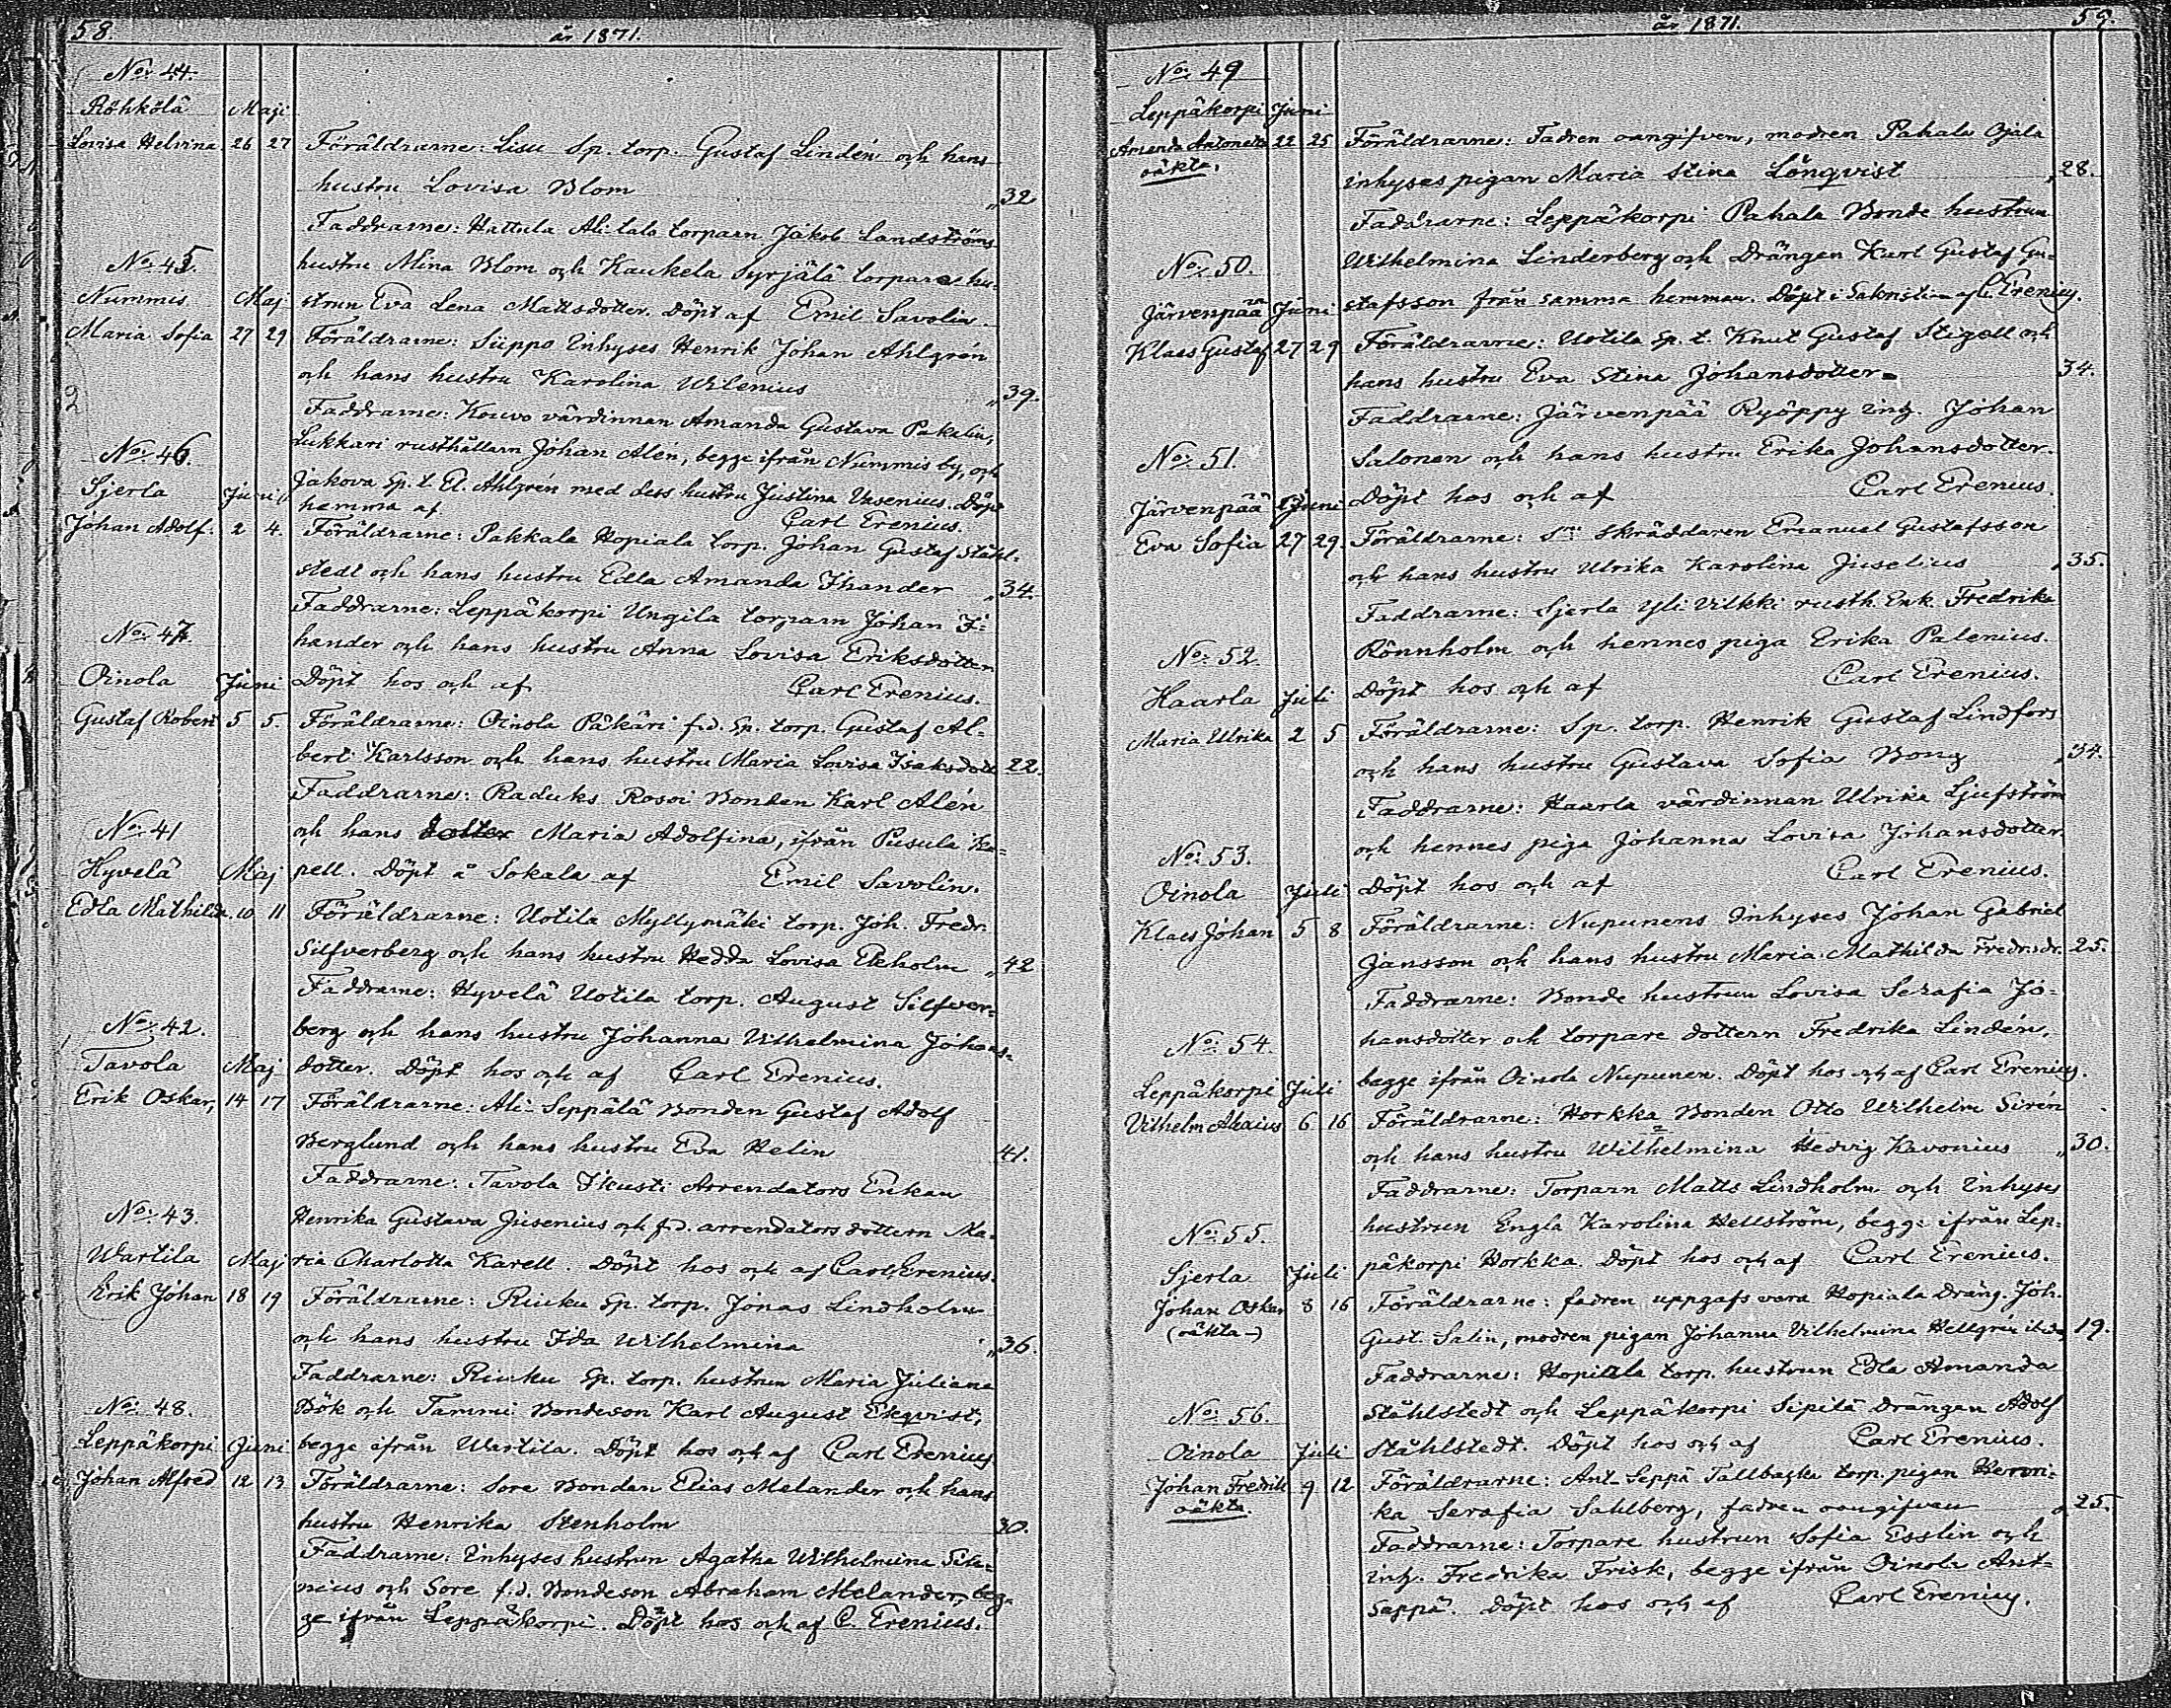 58.
år 1871.
No: 44.
Röhkölä Maji
Lovisa Helvina 26 27 Föräldrarne: Lisu Sp. torp. Gustaf Lindén och hans
hustru Lovisa Blom „ 32
Faddrarne: Hattula Ali-talo torparn Jakob Landströms
No: 45. hustru Mina Blom och Kaukela Syrjälä torpare hu-
Nummis Maj strun Eva Lena Mattsdotter. Döpt af Emil Savolin.
Maria Sofia 27 29 Föräldrarne: Sieppo Inhyses Henrik Johan Ahlgrén
och hans hustru Karolina Wilenius „ 39.
Faddrarne: Kouvo värdinnan Amanda Gustava Pakalin,
No: 46. Lukkari rusthållarn Johan Alén, begge ifrån Nummis by, och
Sjerla Junii Jakova Sp. t. El. Ahlgrén med dess hustru Justina Vesenius. Döpt
hemma af Carl Erenius.
Johan Adolf. 2 4. Föräldrarne: Pakkala Hopiala torp. Johan Gustaf Ståhl-
stedt och hans hustru Edla Amanda Ihander „ 34.
Faddrarne: Leppäkorpi Ungila torparn Johan I-
No: 47. hander och hans hustru Anna Lovisa Eriksdotter
Oinola Juni Döpt hos och af Carl Erenius.
Gustaf Robert 5 5. Föräldrarne: Oinola Päkäri f.d. Sp. torp. Gustaf Al-
bert Karlsson och hans hustru Maria Lovisa Isaksdott. 22.
Faddrarne: Raduks Rosoi Bonden Karl Alén
No: 41 och hans dotter Maria Adolfina, ifrån Pusula Ka-
Hyvelä Maj pell. Döpt å Sokala af Emil Savolin.
Edla Mathilda. 10 11 Föräldrarne: Uotila Myllymäki torp. Joh. Fredr.
Silfverberg och hans hustru Hedda Lovisa Ekholm „ 42
Faddrarne: Hyvelä Uotila torp. August Silfver-
No: 42. berg och hans hustru Johanna Vilhelmina Johans-
Tavola Maj dotter. Döpt hos och af Carl Erenius.
Erik Oskar, 14 17 Föräldrarne: Ali-Seppälä Bonden Gustaf Adolf
Berglund och hans hustru Eva Helin 41.
Faddrarne: Tavola Ikusti Arrendators Enkan
No: 43. Henrika Gustava Jusenius och f.d. arrendators dottern Ma-
Wartila Maj ria Charlotta Karell. Döpt hos och af Carl Erenius.
Erik Johan 18 19 Föräldrarne: Riuku Sp. torp. Jonas Lindholm
och hans hustru Ida Wilhelmina „ 36.
Faddrarne: Riuku Sp. torp. hustrun Maria Juliana
No: 48. Bök och Tammi Bondeson Karl August Ekqvist,
Leppäkorpi Juni begge ifrån Wartila. Döpt hos och af Carl Erenius
Johan Alfred 12 13 Föräldrarne: Sore Bonden Elias Melander och hans
hustru Henrika Stenholm 30.
Faddrarne: Inhyses hustrun Agatha Wilhelmina Sile-
nius och Sore f.d. Bondeson Abraham Melander, beg-
ge ifrån Leppäkorpi. Döpt hos och af C. Erenius.
59.
år 1871.
No: 49
Leppäkorpi Juni
Amanda Antonetta 22 25 Föräldrarne: Fadren oangifven, modren Pahala Ojala
oäkta, inhyses pigan Maria Stina Lönqvist „ 28.
Faddrarne: Leppäkorpi Pahala Bonde hustrun
No: 50. Wilhelmina Linderberg och Drängen Karl Gustaf Gu-
Järvenpää Juni stafsson från samma hemman. Döpt i Sakristian af C. Erenius.
Klaes Gustaf 27 29 Föräldrarne: Uotila Sp. t. Knut Gustaf Stigell och
hans hustru Eva Stina Johansdotter 34.
Faddrarne: Järvenpää Ryöppy inh. Johan
No: 51. Salonen och hans hustru Erika Johansdotter.
Järvenpää Juni Döpt hos och af Carl Erenius.
Eva Sofia 27 29. Föräldrarne: Skräddaren Emanuel Gustafsson
och hans hustru Ulrika Karolina Juselius „ 35.
Faddrarne: Sjerla Yli Vilkki rusth. Enk. Fredrika
No: 52. Rönnholm och hennes piga Erika Palenius.
Haarla Juli Döpt hos och af Carl Erenius.
Maria Ulrika 2 5 Föräldrarne: Sp. torp. Henrik Gustaf Lindfors
och hans hustru Gustava Sofia Bong „ 34.
Faddrarne: Haarla värdinnan Ulrika Ljufström
No: 53. och hennes piga Johanna Lovisa Johansdotter.
Oinola Juli Döpt hos och af Carl Erenius.
Klaes Johan 5 8 Föräldrarne: Nupunens Inhyses Johan Gabriel
Jansson och hans hustru Maria Mathilda Fredr.dr. 25.
Faddrarne: Bonde hustrun Lovisa Serafia Jo-
No: 54. hansdotter och torpare dottern Fredrika Lindén,
Leppäkorpi Juli begge ifrån Oinola Nupunen. Döpt hos och af Carl Erenius.
Vilhelm Akaius 6 16 Föräldrarne: Horkka Bonden Otto Wilhelm Sirén
och hans hustru Wilhelmina Hedvig Kavonius „ 30.
Faddrarne: Torparn Matts Lindholm och Inhyses
No: 55. hustrun Engla Karolina Hellström, begge ifrån Lep-
Sjerla Juli päkorpi Horkka. Döpt hos och af Carl Erenius.
Johan Oskar 8 16 Föräldrarne: fadren uppgafs vara Hopiala Dräng. Joh.
(oäkta-) Gust. Salin, modren pigan Johanna Vilhelmina Hellgrén 19.
Faddrarne: Hopiala torp. hustrun Edla Amanda
No: 56. Ståhlstedt och Leppäkorpi Sipilä drängen Adolf
Oinola Juli Ståhlstedt. Döpt hos och af Carl Erenius.
Johan Fredrik 9 12 Föräldrarne: Ant-Seppä Tallbacka torp. pigan Heroni-
oäkta. ka Serafia Sahlberg, fadren oangifvan „ 25.
Faddrarne: Torpare hustrun Sofia Esslin och
inh. Fredrika Frisk, begge ifrån Oinola Ant-
Seppä. Döpt hos och af Carl Erenius.